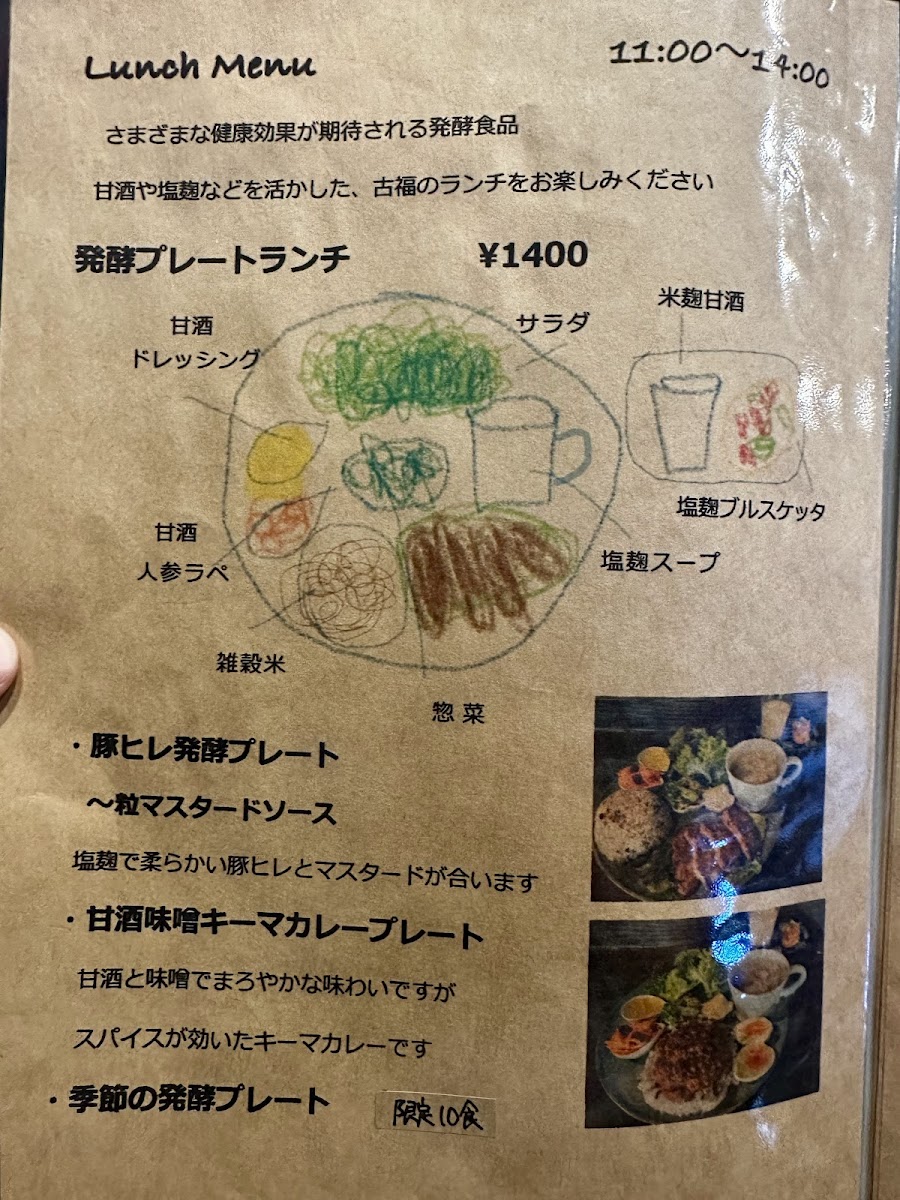 Lunch Menu 11:00〜14:00
さまざまな健康効果が期待される発酵食品
甘酒や塩麹などを活かした、古福のランチをお楽しみください
発酵プレートランチ ¥1400
米麹甘酒
甘酒
ドレッシング
サラダ
塩麹ブルスケッタ
甘酒
人参ラペ
塩麹スープ
雑穀米
惣菜
・豚ヒレ発酵プレート
〜粒マスタードソース
塩麹で柔らかい豚ヒレとマスタードが合います
・甘酒味噌キーマカレープレート
甘酒と味噌でまろやかな味わいですが
スパイスが効いたキーマカレーです
・季節の発酵プレート 限定10食